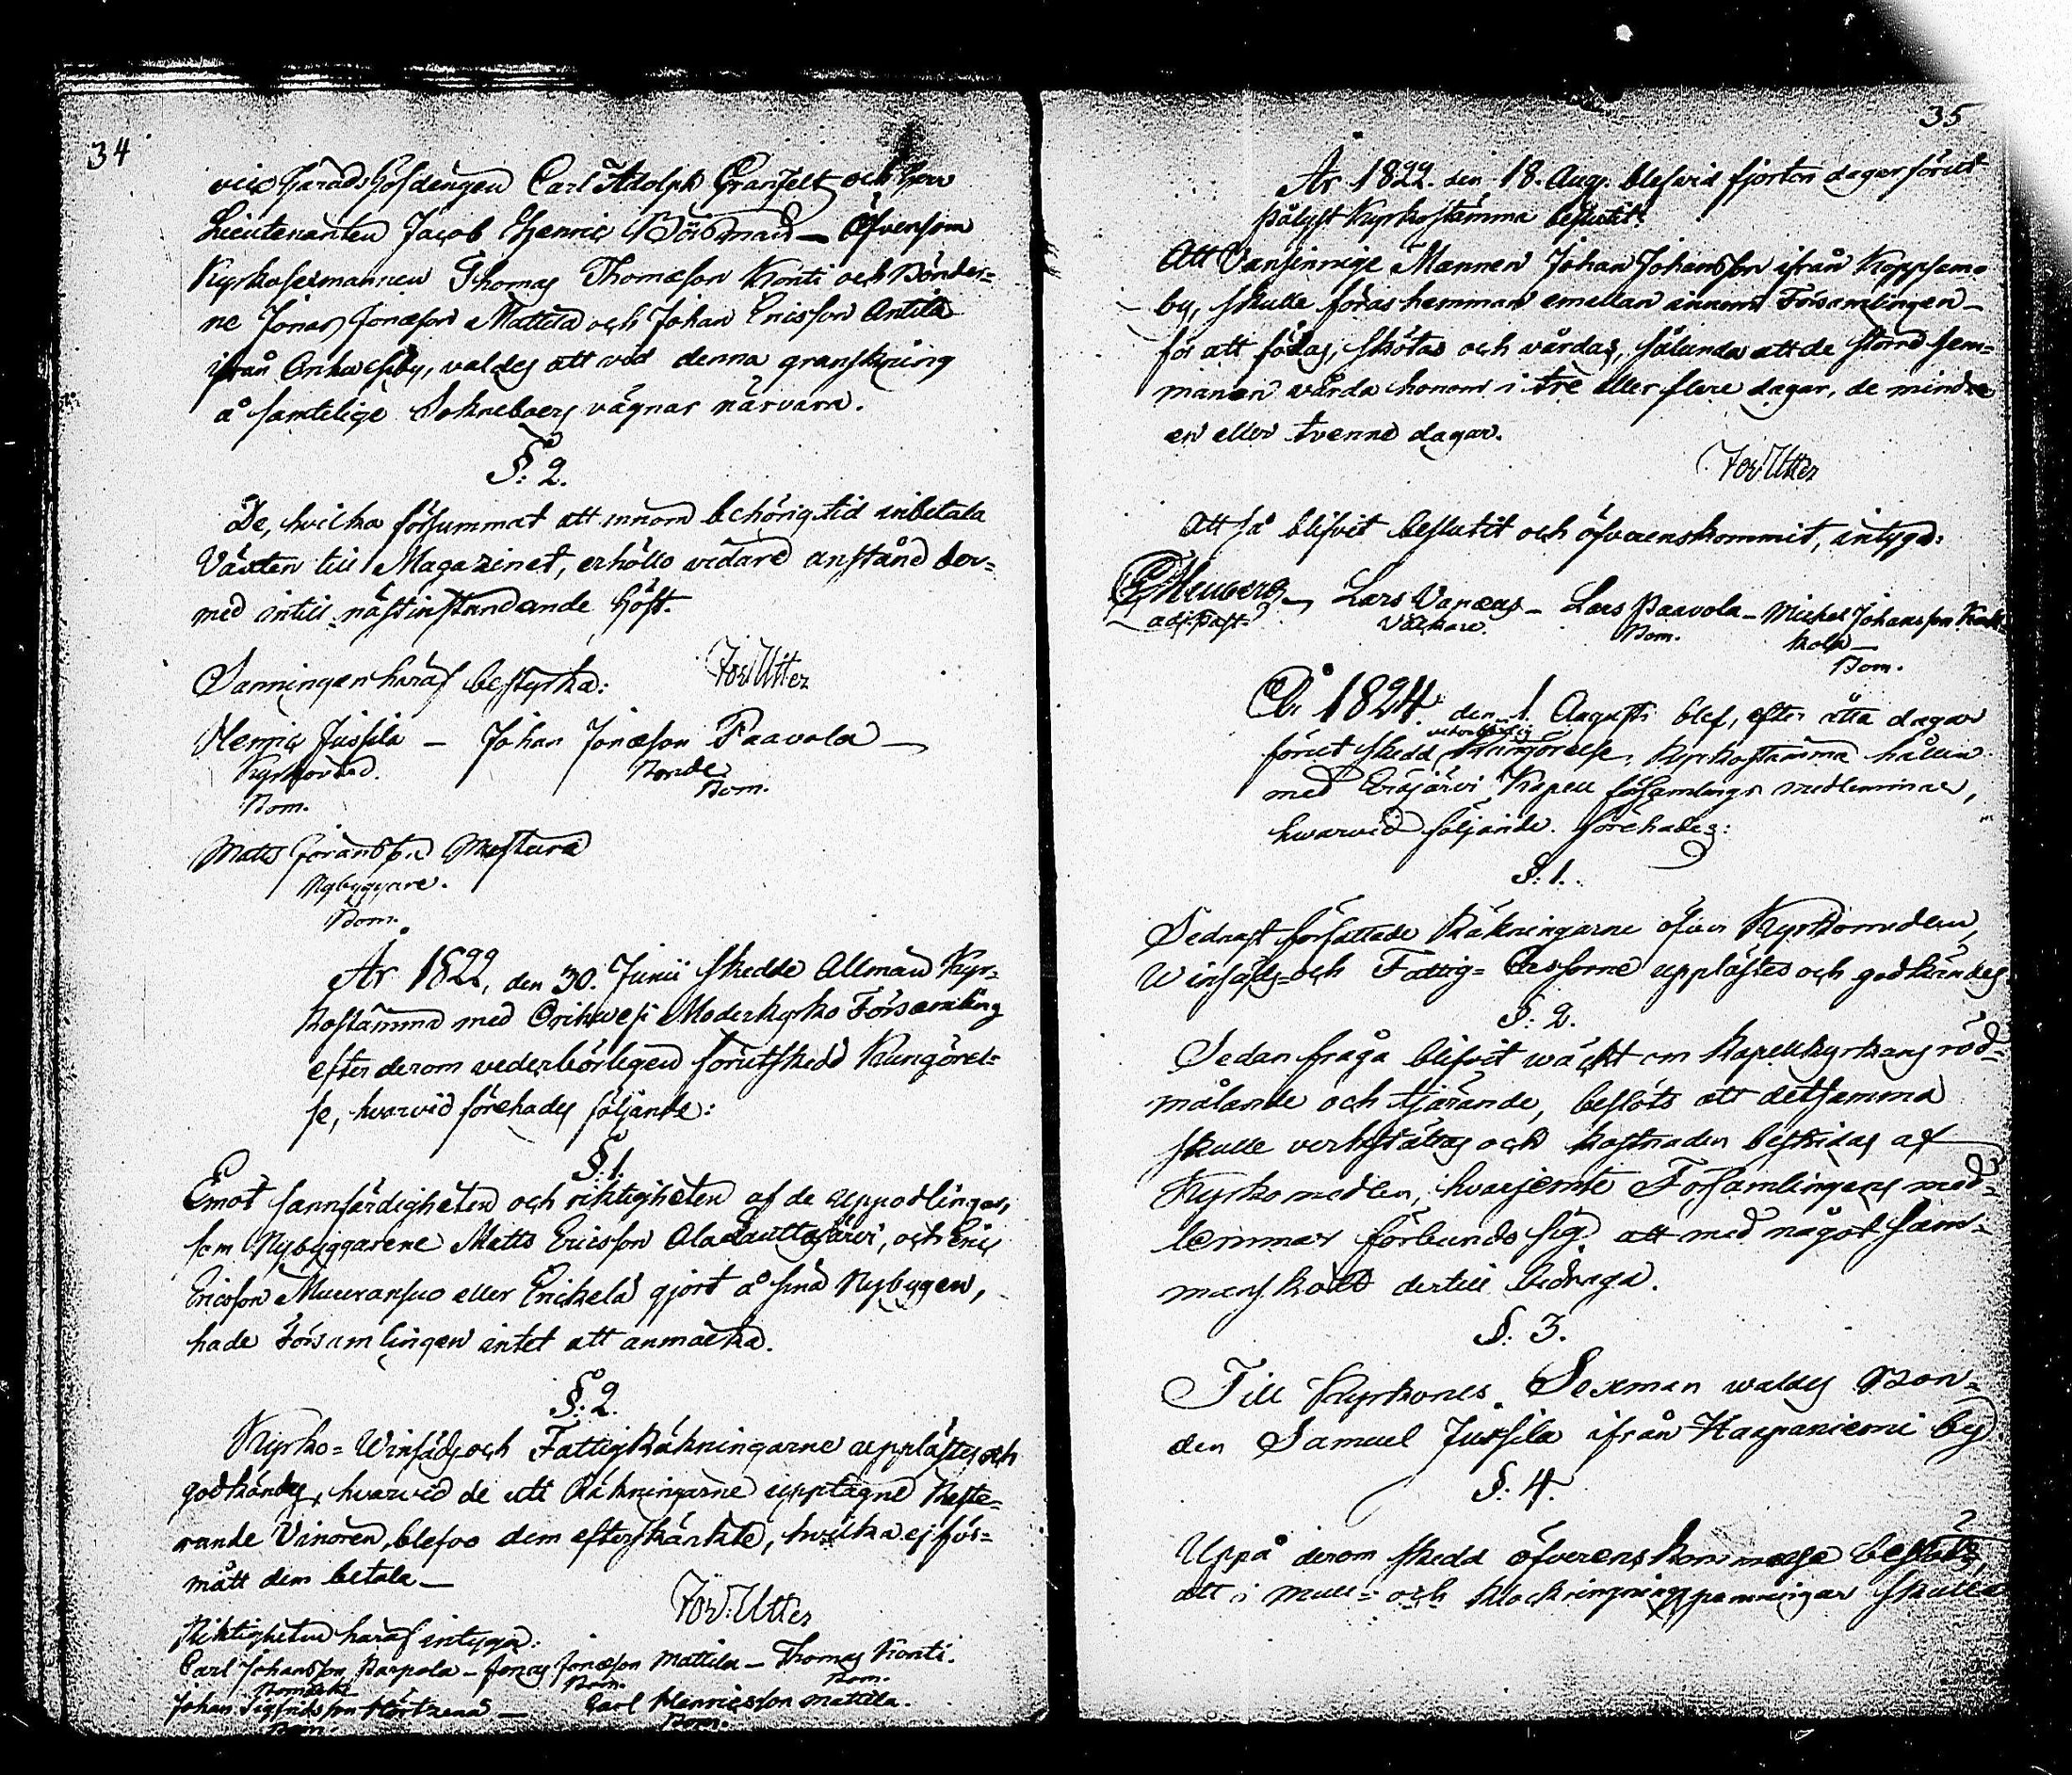 34
vice Härads Höfdingen Carl Adolph Granfelt och Herr
Lieutenanten Jacob Henric Börsman – Äfvensom
Kyrkosexmannen Thomas Thomæson Konti och Bönder=
ne Jonas Jonæson Mattila och Johan Ericsson Antila
ifrån Orihvesi by, valdes att vid denna granskning
å samtelige Sokneboers vägnar närvara.
§. 2.
De, hvilka försummat att innom behörig tid inbetala
Växten till Magazinet, erhöllo vidare anstånd der=
med intill nästinstundande Höst.
Sanningen häraf bestyrka: Jos: Utter
Henric Jussila – Johan Jonæson Paavola –
Kyrkovärd. Bonde
Bom. Bom.
Matts Göransson Mustura
Nybyggare.
Bom.
År 1822, den 30. Junii skedde Allmän Kyr=
kostämma med Orihvesi Moderkyrko Församling
efter derom vederbörligen förutskedd Kungörel=
se, hvarvid förehades följande:
§. 1.
Emot sannfärdigheten och riktigheten af de uppodlingar,
som Nybyggarene Matts Ericsson Alalauttajärvi, och Eric
Ericsson Muuransuo eller Erickelä gjort å sina Nybyggen,
hade Församlingen intet att anmärka.
§. 2.
Kyrko= Winsäds och Fattig Räkningarne upplästes och
godkändes, hvarvid de uti Räkningarne upptagne Reste=
rande Vinören, blefvo dem efterskänkte, hvilka ej för=
mått dem betala –
Jos: Utter
Riktigheten häraf intyga:
Carl Johansson Parpola – Jonas Jonæson Mattila – Thomas Konti.
Bomärke Bom. Bom.
Johan Sigfridsson Hörtzänä – Carl Henricsson Mattila.
Bom. Bom.
35
År 1822. den 18. Aug. blef vid fjorton dagar förut
pålyst Kyrkostämma beslutit:
Att Vansinnige Mannen Johan Johansson ifrån Koppsamo
by, skulle föras hemman emellan innom Församlingen –
för att födas, skötas och vårdas, sålunda att de större hem=
manen vårda honom i tre eller flere dagar, de mindre
en eller tvenne dagar.
Jos: Utter
Att så blifvit beslutit och öfverenskommit, intyga:
Lars Vaneus – Lars Paavola – Michel Johansson
adj: Past: Välkare. Bom. kola –
Bom.
År 1824. den 1. Augusti blef, efter åtta dagar
vederbörlig
förut skedd Kungörelse, Kyrkostämma hållen
med Eräjärvi Kapell församlings medlemmar,
hvarvid följande förehades:
§. 1.
Sednast författade Räkningarne öfver Kyrkomedlen,
Winsäds= och Fattig= Cassorne upplästes och godkändes.
§. 2.
Sedan fråga blifvit wäckt om Kapellkyrkans röd=
målande och tjärande, beslöts att detsamma
skulle verkställas och kostnaden bestridas af
Kyrkomedlen, hvarjemte Församlingens med=
lemmar förbundo sig att med något sam=
manskott dertill bidraga.
§. 3.
Till Kyrkones Sexman waldes Bon=
den Samuel Jussila ifrån Haapaniemi by
§. 4.
Uppå derom skedd öfverenskommelse beslöts,
att i mull= och klockringningspenningar skulle